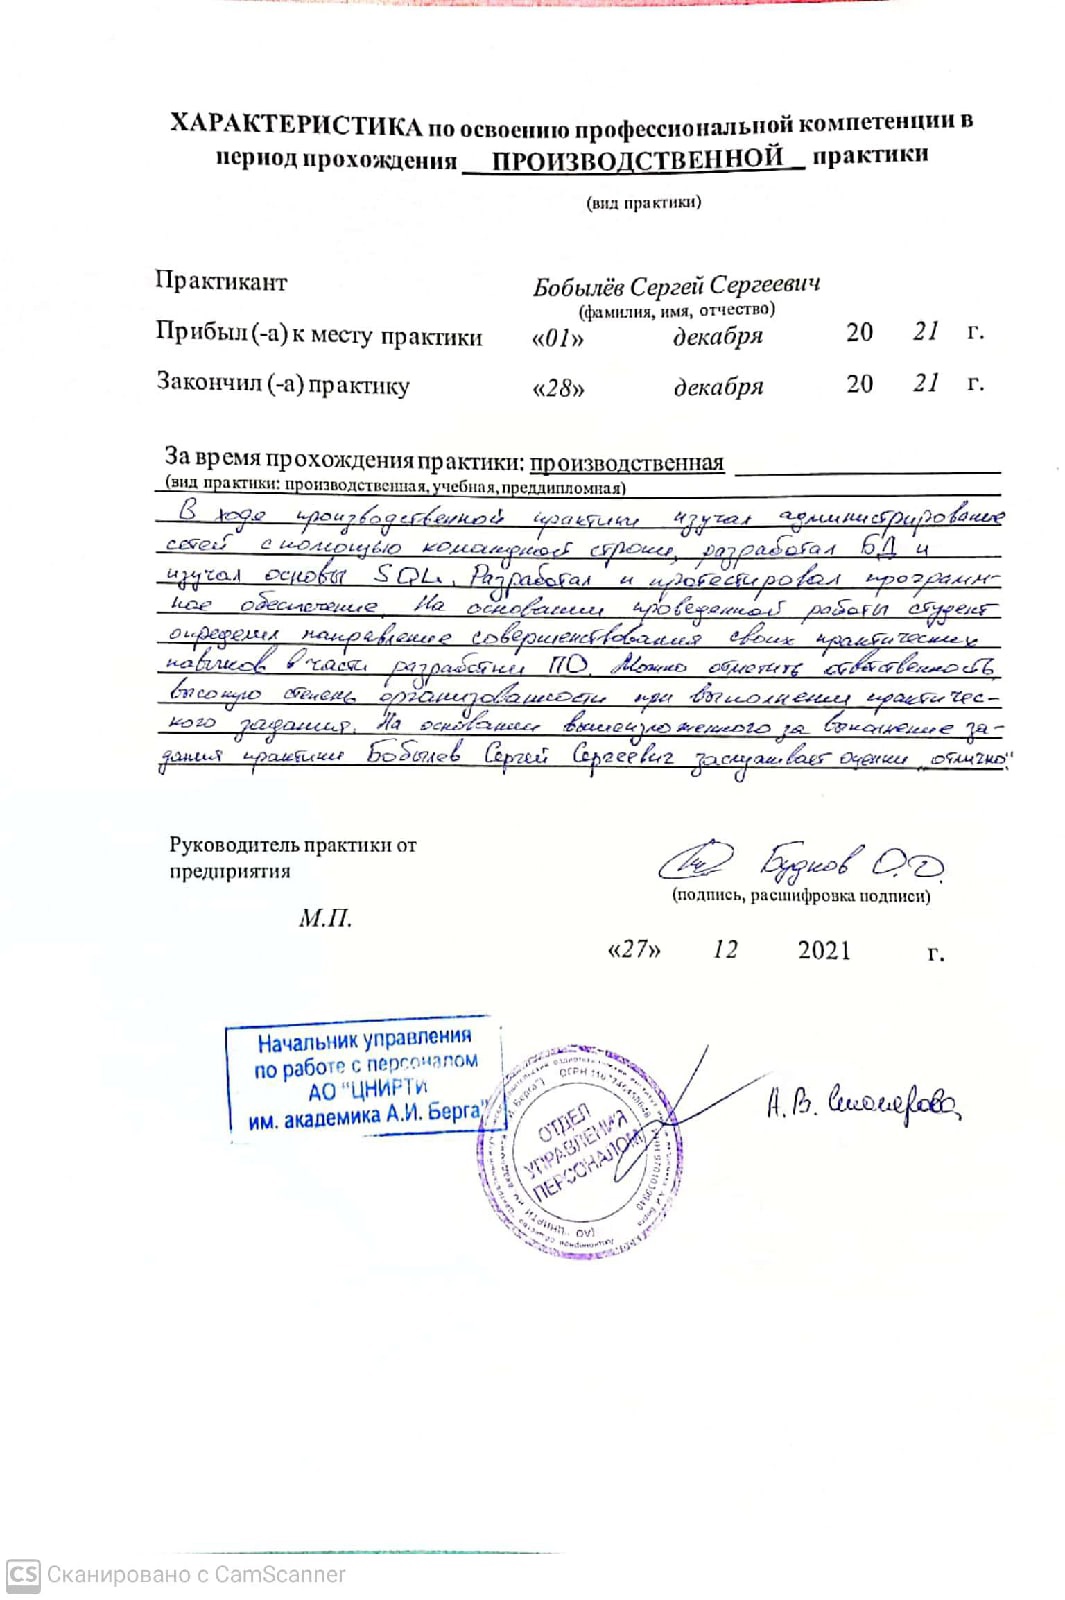 ХАРАКТЕРИСТИКА по освоению профессиональной компетенции в
период прохождения __ПРОИЗВОДСТВЕННОЙ_ практики
(вид практики)
Практикант Бобылёв Сергей Сергеевич
(фамилия, имя, отчество)
Прибыл (-а) к месту практики «01» декабря 20 21 г.
Закончил (-а) практику «28» декабря 20 21 г.
За время прохождения практики: производственная
(вид практики: производственная, учебная, преддипломная)
В ходе производственной практики изучал администрирование
сетей с помощью командной строки, разработал БД и
изучал основы SQL. Разработал и протестировал программ-
ное обеспечение. На основании проведенной работы студент
определил направление совершенствования своих практических
навыков в части разработки ПО. Можно отметить ответственность,
высокую степень организованности при выполнении практичес-
кого задания. На основании вышеизложенного за выполнение за-
дания практики Бобылев Сергей Сергеевич заслуживает оценки „отлично"
Руководитель практики от
предприятия
Будков О.
(подпись, расшифровка подписи)
М.П.
«27» 12 2021 г.
Начальник управления
по работе с персоналом
АО "ЦНИРТИ
им. академика А.И. Берга"
ОТДЕЛ
УПРАВЛЕНИЯ
ПЕРСОНАЛОМ
(АО "ЦНИРТИ им. академика А.И. Берга")
А.В.
CS Сканировано с CamScanner